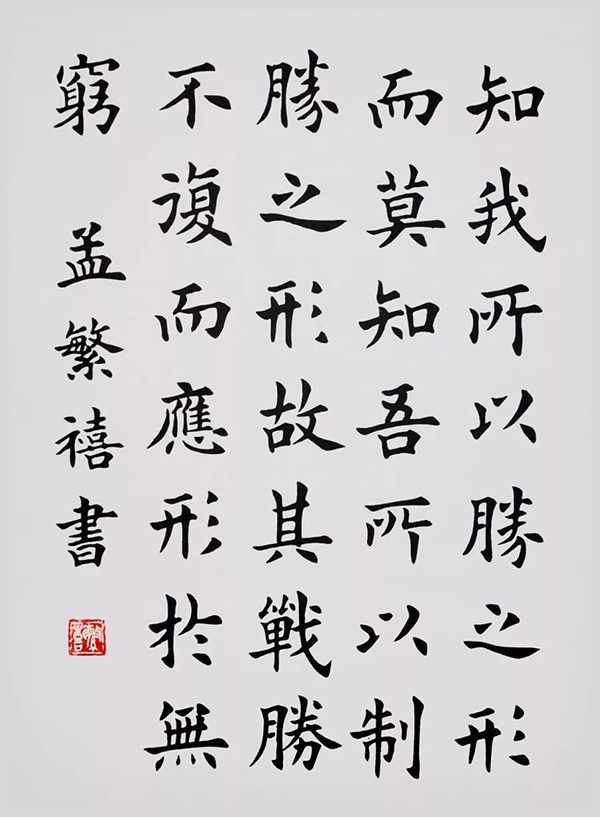 知我所以勝之形
而莫知吾所以制
勝之形故其戰勝
不復而應形於無
窮 孟繁禧書